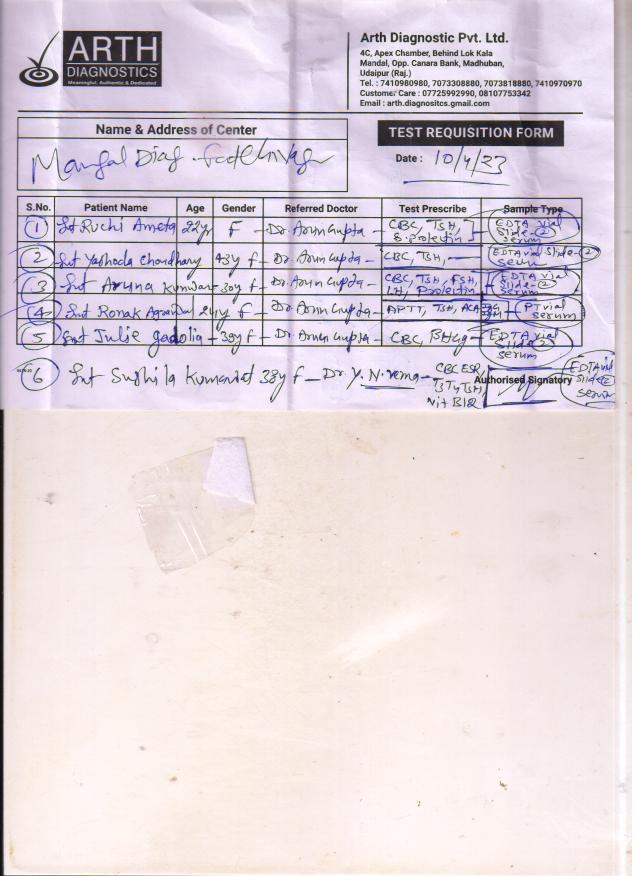 ARTH
DIAGNOSTICS
Meaningful, Authentic & Dedicated
Arth Diagnostic Pvt. Ltd.
4C, Apex Chamber, Behind Lok Kala
Mandal, Opp. Canara Bank, Madhuban,
Udaipur (Raj.)
Tel. : 7410980980, 7073308880, 7073818880, 7410970970
Customer Care : 07725992990, 08107753342
Email : arth.diagnositcs.gmail.com
Name & Address of Center
Mangal Diag
TEST REQUISITION FORM
Date : 10/4/23
S.No. Patient Name Age Gender Referred Doctor Test Prescribe Sample Type
1 Smt Ruchi Ameta 22y F - Dr. Arun Gupta - CBC, TSH, S. Prolectin EDTA vial Slide-2 serum
2 Smt Yashoda Choudhary 43y F - Dr. Arun Gupta - CBC, TSH, EDTA vial Slide-2 serum
3 Smt Aruna Kunwar - 30y F - Dr. Arun Gupta - CBC, TSH, FSH, LH, Prolectin EDTA vial Slide-2 serum
4 Smt Ronak Agrawal 24y F - Dr. Arun Gupta - APTT, TSH, PT vial serum
5 Smt Julie - 38y F - Dr. Arun Gupta - CBC, EDTA vial Slide-2 serum
6 Smt Sushila Kumawat 38y F - Dr. Y. N. Verma - CBC ESR, T3 T4 TSH, Vit B12 EDTA vial Slide-2 serum
Authorised Signatory